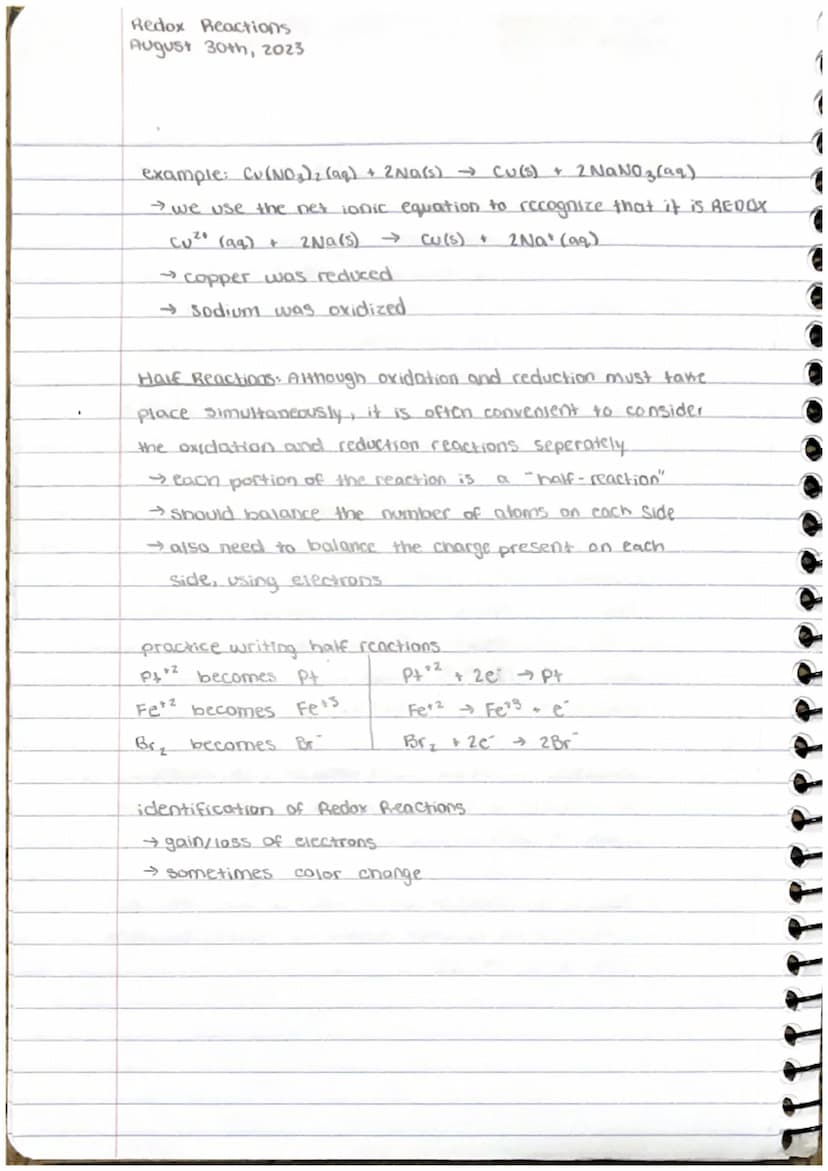 Redox Reactions
August 30th, 2023
example: Cu(NO₃)₂ (aq) + 2Na(s) → Cu(s) + 2NaNO₃(aq)
→ we use the net ionic equation to recognize that it is REDOX
Cu²⁺ (aq) + 2Na(s) → Cu(s) + 2Na⁺ (aq)
→ copper was reduced
→ sodium was oxidized
Half Reactions: Although oxidation and reduction must take
place simultaneously, it is often convenient to consider
the oxidation and reduction reactions seperately
→ each portion of the reaction is a "half-reaction"
→ should balance the number of atoms on each side
→ also need to balance the charge present on each
side, using electrons
practice writing half reactions
Pt⁺² becomes Pt | Pt⁺² + 2e⁻ → Pt
Fe⁺² becomes Fe⁺³ | Fe⁺² → Fe⁺³ + e⁻
Br₂ becomes Br⁻ | Br₂ + 2e⁻ → 2Br⁻
identification of Redox Reactions
→ gain/loss of electrons
→ sometimes color change